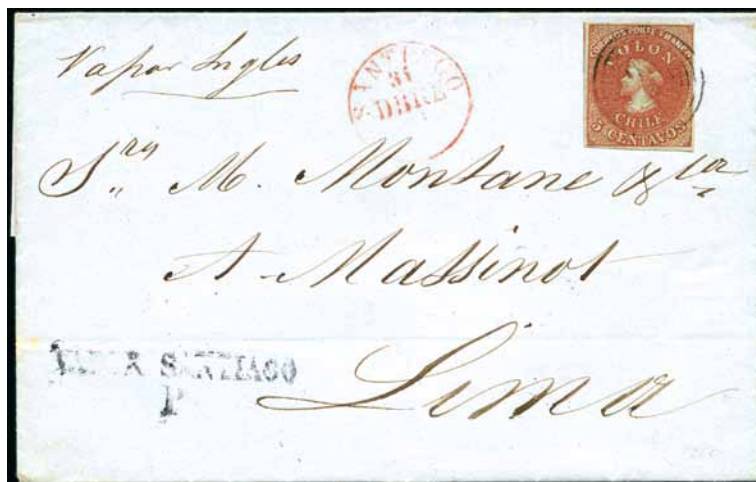 Vapor Ingles
SANTIAGO
31
DBRE
CORREOS PORTE FRANCO
COLON
CHILE
5 CENTAVOS
Srs M. Montane & Ca
A. Massinot
Lima
SANTIAGO
P